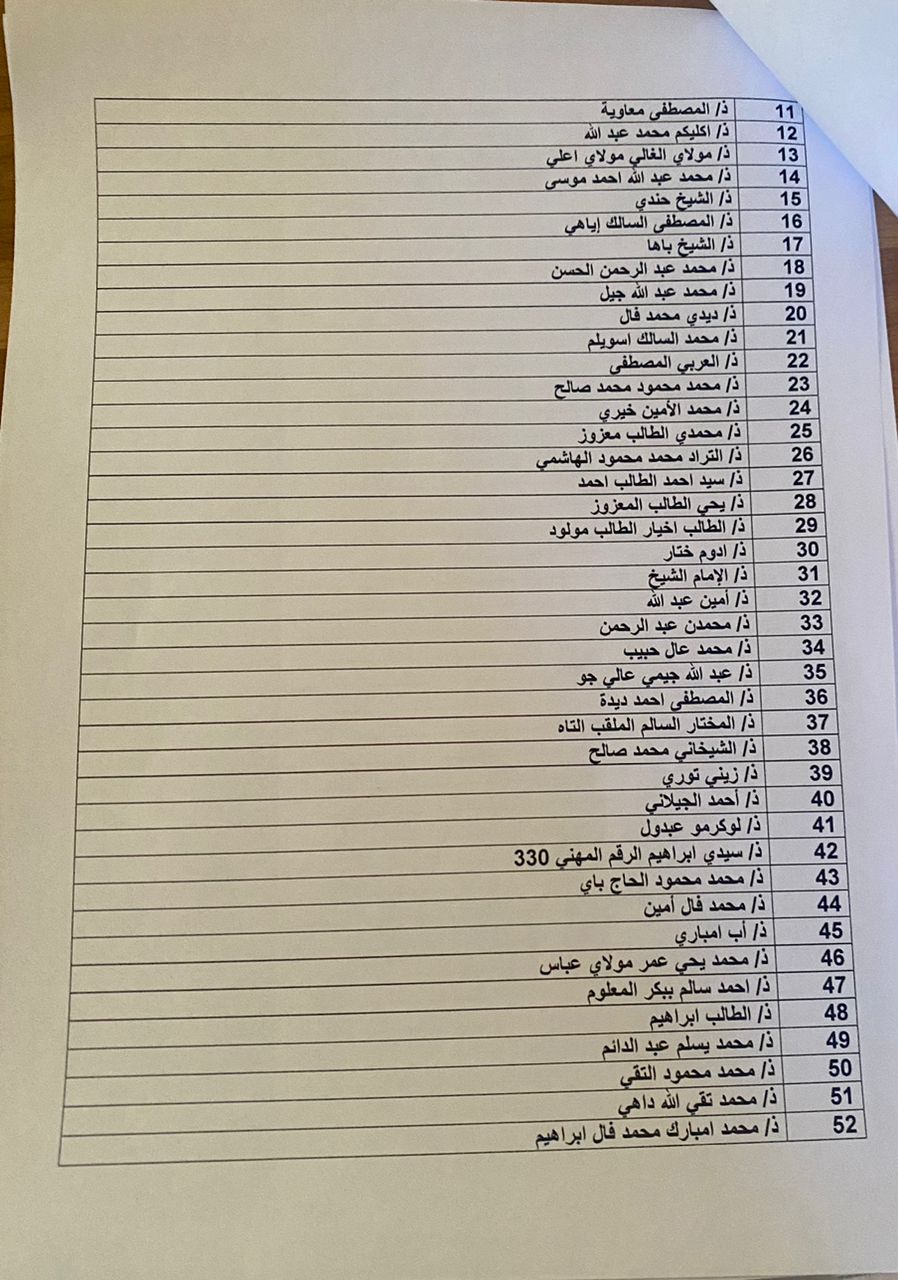 11 ذ/ المصطفى معاوية
12 ذ/ اكليكم محمد عبد الله
13 ذ/ مولاي الغالي مولاي اعلي
14 ذ/ محمد عبد الله احمد موسى
15 ذ/ الشيخ حندي
16 ذ/ المصطفى السالك إياهي
17 ذ/ الشيخ باها
18 ذ/ محمد عبد الرحمن الحسن
19 ذ/ محمد عبد الله جيل
20 ذ/ ديدي محمد فال
21 ذ/ محمد السالك اسويلم
22 ذ/ العربي المصطفى
23 ذ/ محمد محمود محمد صالح
24 ذ/ محمد الأمين خيري
25 ذ/ محمدي الطالب معزوز
26 ذ/ التراد محمد محمود الهاشمي
27 ذ/ سيد احمد الطالب احمد
28 ذ/ يحي الطالب المعزوز
29 ذ/ الطالب اخيار الطالب مولود
30 ذ/ ادوم ختار
31 ذ/ الإمام الشيخ
32 ذ/ أمين عبد الله
33 ذ/ محمدن عبد الرحمن
34 ذ/ محمد عال حبيب
35 ذ/ عبد الله جيمي عالي جو
36 ذ/ المصطفى احمد ديدة
37 ذ/ المختار السالم الملقب التاه
38 ذ/ الشيخاني محمد صالح
39 ذ/ زيني توري
40 ذ/ أحمد الجيلاني
41 ذ/ لوكرمو عبدول
42 ذ/ سيدي ابراهيم الرقم المهني 330
43 ذ/ محمد محمود الحاج باي
44 ذ/ محمد فال أمين
45 ذ/ أب امباري
46 ذ/ محمد يحي عمر مولاي عباس
47 ذ/ احمد سالم ببكر المعلوم
48 ذ/ الطالب ابراهيم
49 ذ/ محمد يسلم عبد الدائم
50 ذ/ محمد محمود التقي
51 ذ/ محمد تقي الله داهي
52 ذ/ محمد امبارك محمد فال ابراهيم